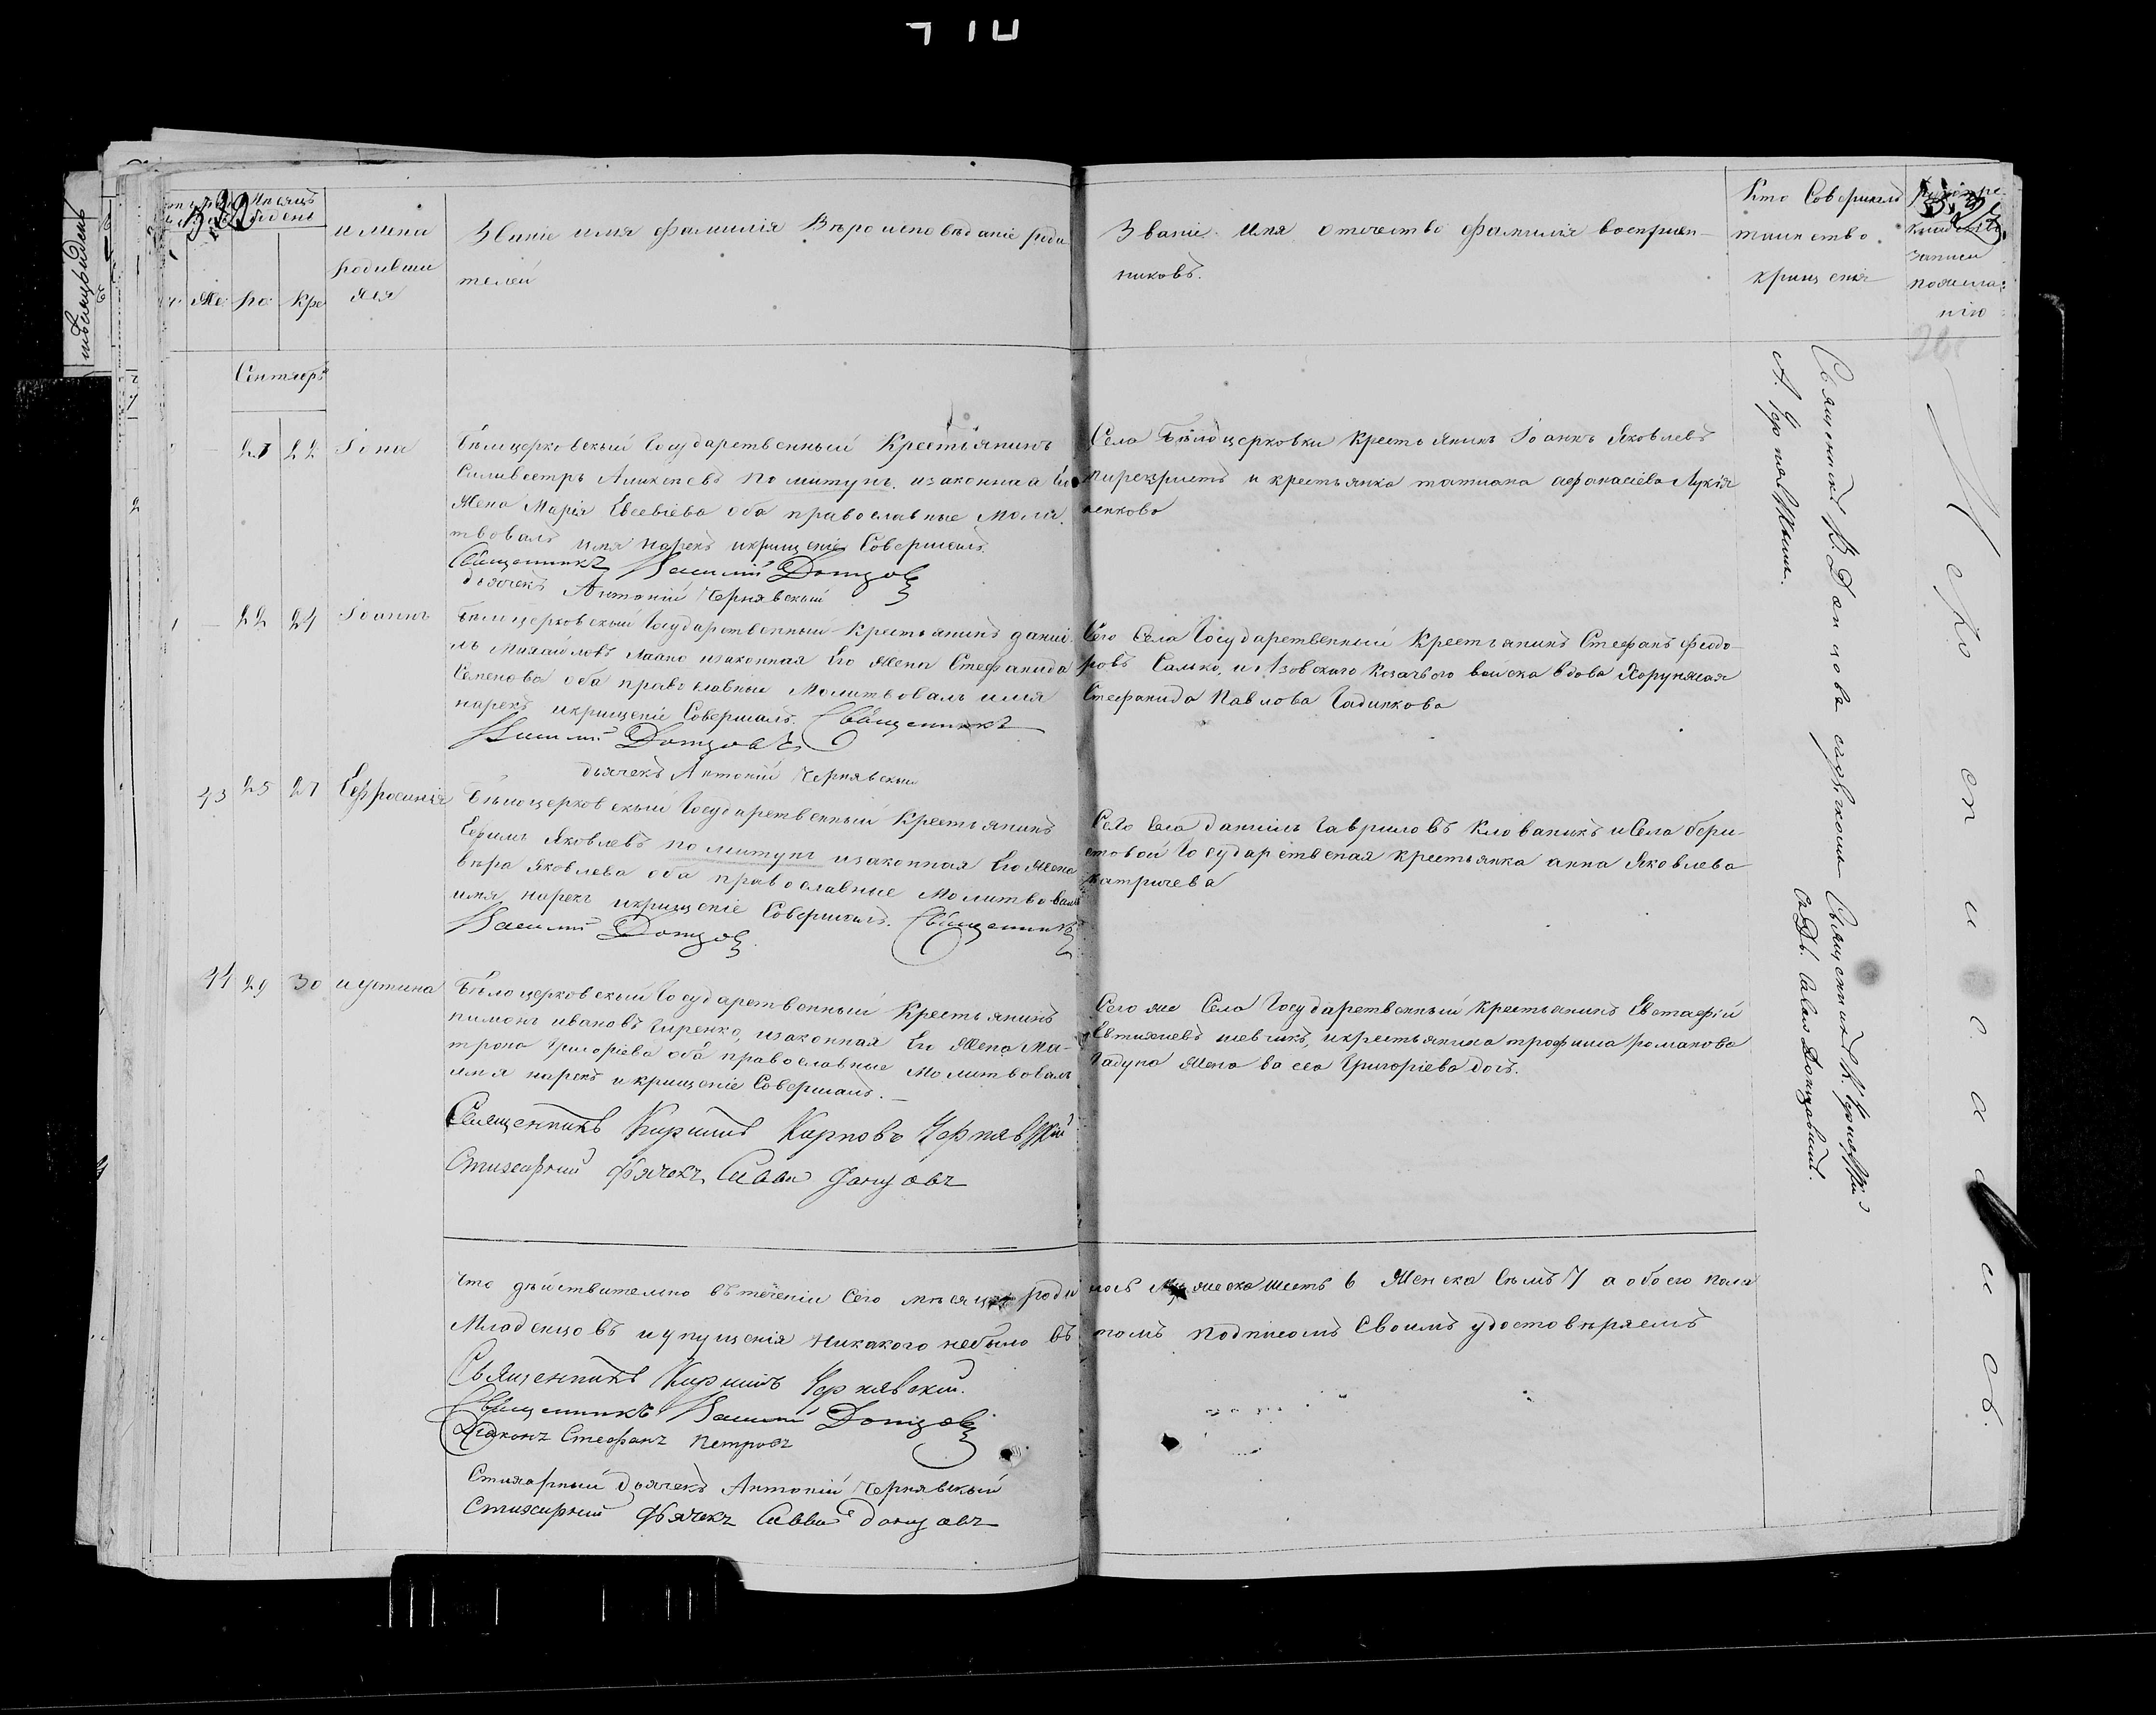 мѣсяцъ и день
Мѣсяцъ
и день
имена
родивши
хся
Же. Ро. Кре
Званіе имя фамилія Вѣроисповѣданіе роди
телей
Званіе Имя отечество фамилія воспріем
никовъ.
Кто Совершалъ
таинство
крищенія
записи
пожела
нію
Сентябрь
21 22 Іона
Бѣлоцерковскый Государственный Крестьянинъ
Силивестръ Аликсѣевъ Политунъ изаконная Ево
Жена Марія Евсевіева оба православные Моли
твовалъ имя нарекъ икрищеніе Совершалъ.
Священникъ Василій Донцовъ
дьячекъ Антоній Чернявскый
Села Бѣлоцерковки Крестьянинъ Іоаннъ Яковлевъ
Перехристъ и крестьянка татиана афанасіева Лукія
ненкова
22 24 Іоаннъ
Бѣлоцерковскый Государственный Крестьянинъ даніи
лъ Михайловъ Лапко изаконная Его Жена Стефанида
Семенова оба православные Молитвовалъ имя
нарекъ икрищеніе Совершалъ. Священникъ
Василій Донцовъ
дьячекъ Антоній Чернявскый
Сего Села Государственный Крестьянинъ Стефанъ феодо
ровъ Салко, и Азовскаго Козачьего войска вдова Хорунжая
Стефанида Павлова Гадинкова
43 25 27 Ефросинія
Бѣлоцерковскый Государственный Крестьянинъ
Ефимъ Яковлевъ политунъ изаконная Его Жена
вѣра Яковлева оба православные Молитвовалъ
имя нарекъ икрищеніе Совершалъ. Священникъ
Василій Донцовъ
Сего Села даніилъ Гавриловъ Клованикъ иСела бери
стовой Государственая крестьянка анна Яковлева
Катричева
44 29 30 иустина
Бѣлоцерковскый Государственный Крестьянинъ
пимонъ ивановъ Гиренко, изаконная Его Жена Ма
трона Григоріева оба православные Молитвовалъ
имя нарекъ и крищеніе Совершалъ.
Священникъ Кирилъ Карповъ Чернявскій
Стихарный дьячекъ Савва Донцовъ
Сего же Села Государственный крестьянинъ Евстафій
Евтихіевъ шевчикъ, икрестьянина трофима романова
Гадуна Жена васса Григоріева дочь.
Что дѣйствително втеченіи Сего мѣсяца родилось Мужеска шесть 6 Женска Семъ 7 а обоего пола
Младенцовъ и упущенія никакого небыло въ томъ подписомъ Своимъ удостовѣряемъ
Священникъ Кирилъ Чернявскій.
Священникъ Василій Донцовъ
Діаконъ Стефанъ Петровъ
Стихарный дьячекъ Антоній Чернявскый
Стихарный дьячекъ Савва донцовъ